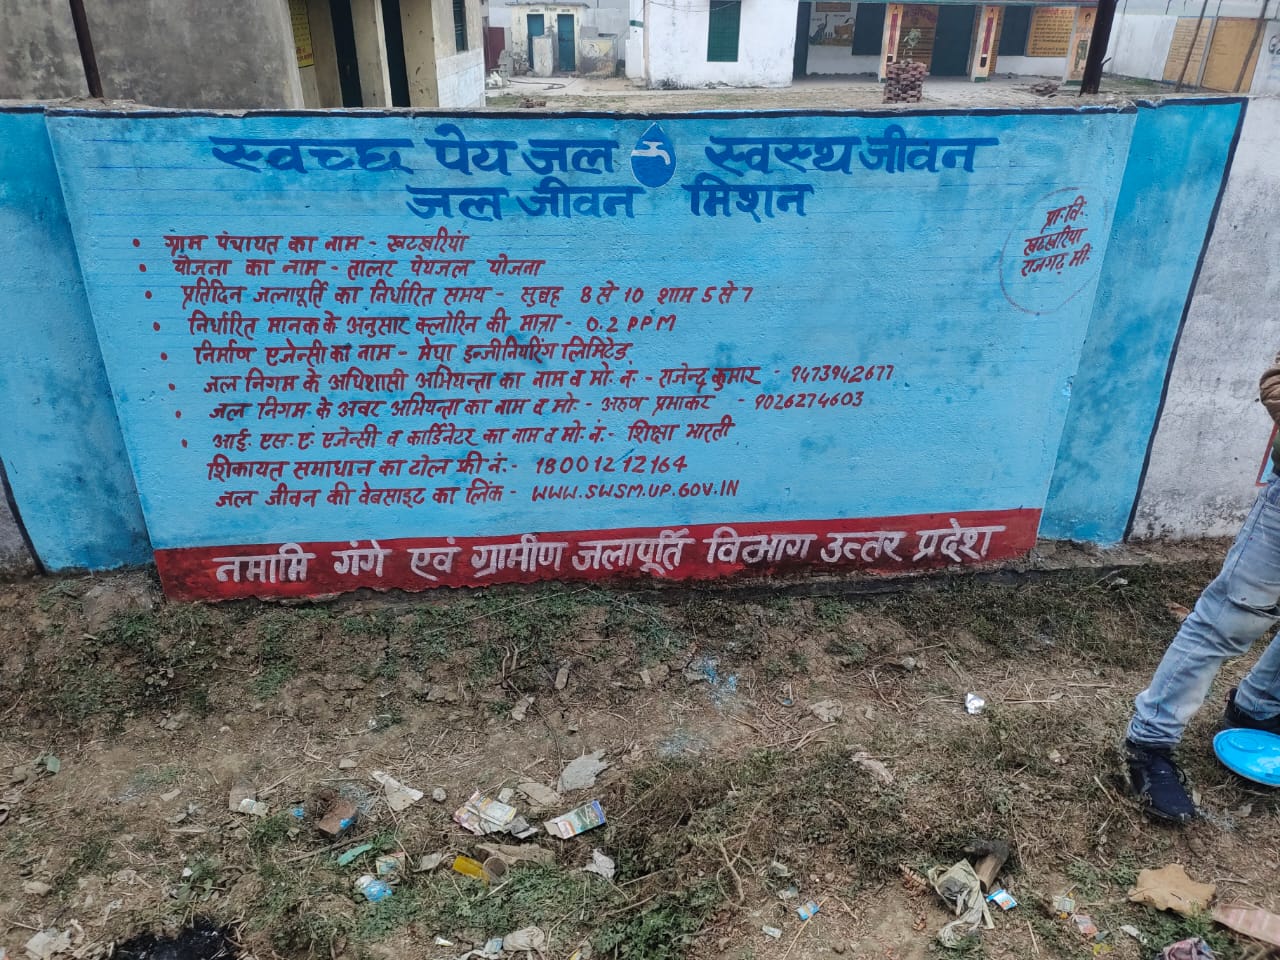 स्वच्छ पेय जल स्वस्थ जीवन
जल जीवन मिशन
प्रा. वि.
खटखरिया
राजगढ़ मी.
• ग्राम पंचायत का नाम - खटखरियां
• योजना का नाम - तालर पेयजल योजना
• प्रतिदिन जलापूर्ति का निर्धारित समय - सुबह 8 से 10 शाम 5 से 7
• निर्धारित मानक के अनुसार क्लोरिन की मात्रा - 0.2 PPM
• निर्माण एजेन्सी का नाम - मेघा इन्जीनियरिंग लिमिटेड
• जल निगम के अधिशासी अभियन्ता का नाम व मो. नं. - राजेन्द्र कुमार - 9473942677
जल निगम के अवर अभियन्ता का नाम व मो. - अरुण प्रभाकर - 9026274603
• आई. एस. ए. एजेन्सी व कार्डिनेटर का नाम व मो. नं. - शिक्षा भारती
शिकायत समाधान का टोल फ्री नं. - 18001212164
जल जीवन की वेबसाइट का लिंक - WWW.SWSM.UP.GOV.IN
नमामि गंगे एवं ग्रामीण जलापूर्ति विभाग उत्तर प्रदेश